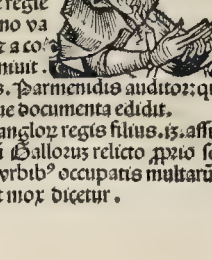 regie
no va
t a co
miuit .
s. Parmenidis auditor: q
ue documenta edidit.
anglorꝝ regis filius. iz. aff
i Galloruꝫ relicto ꝓprio s
vrbibꝰ occupatis multarū
t mox dicetur .